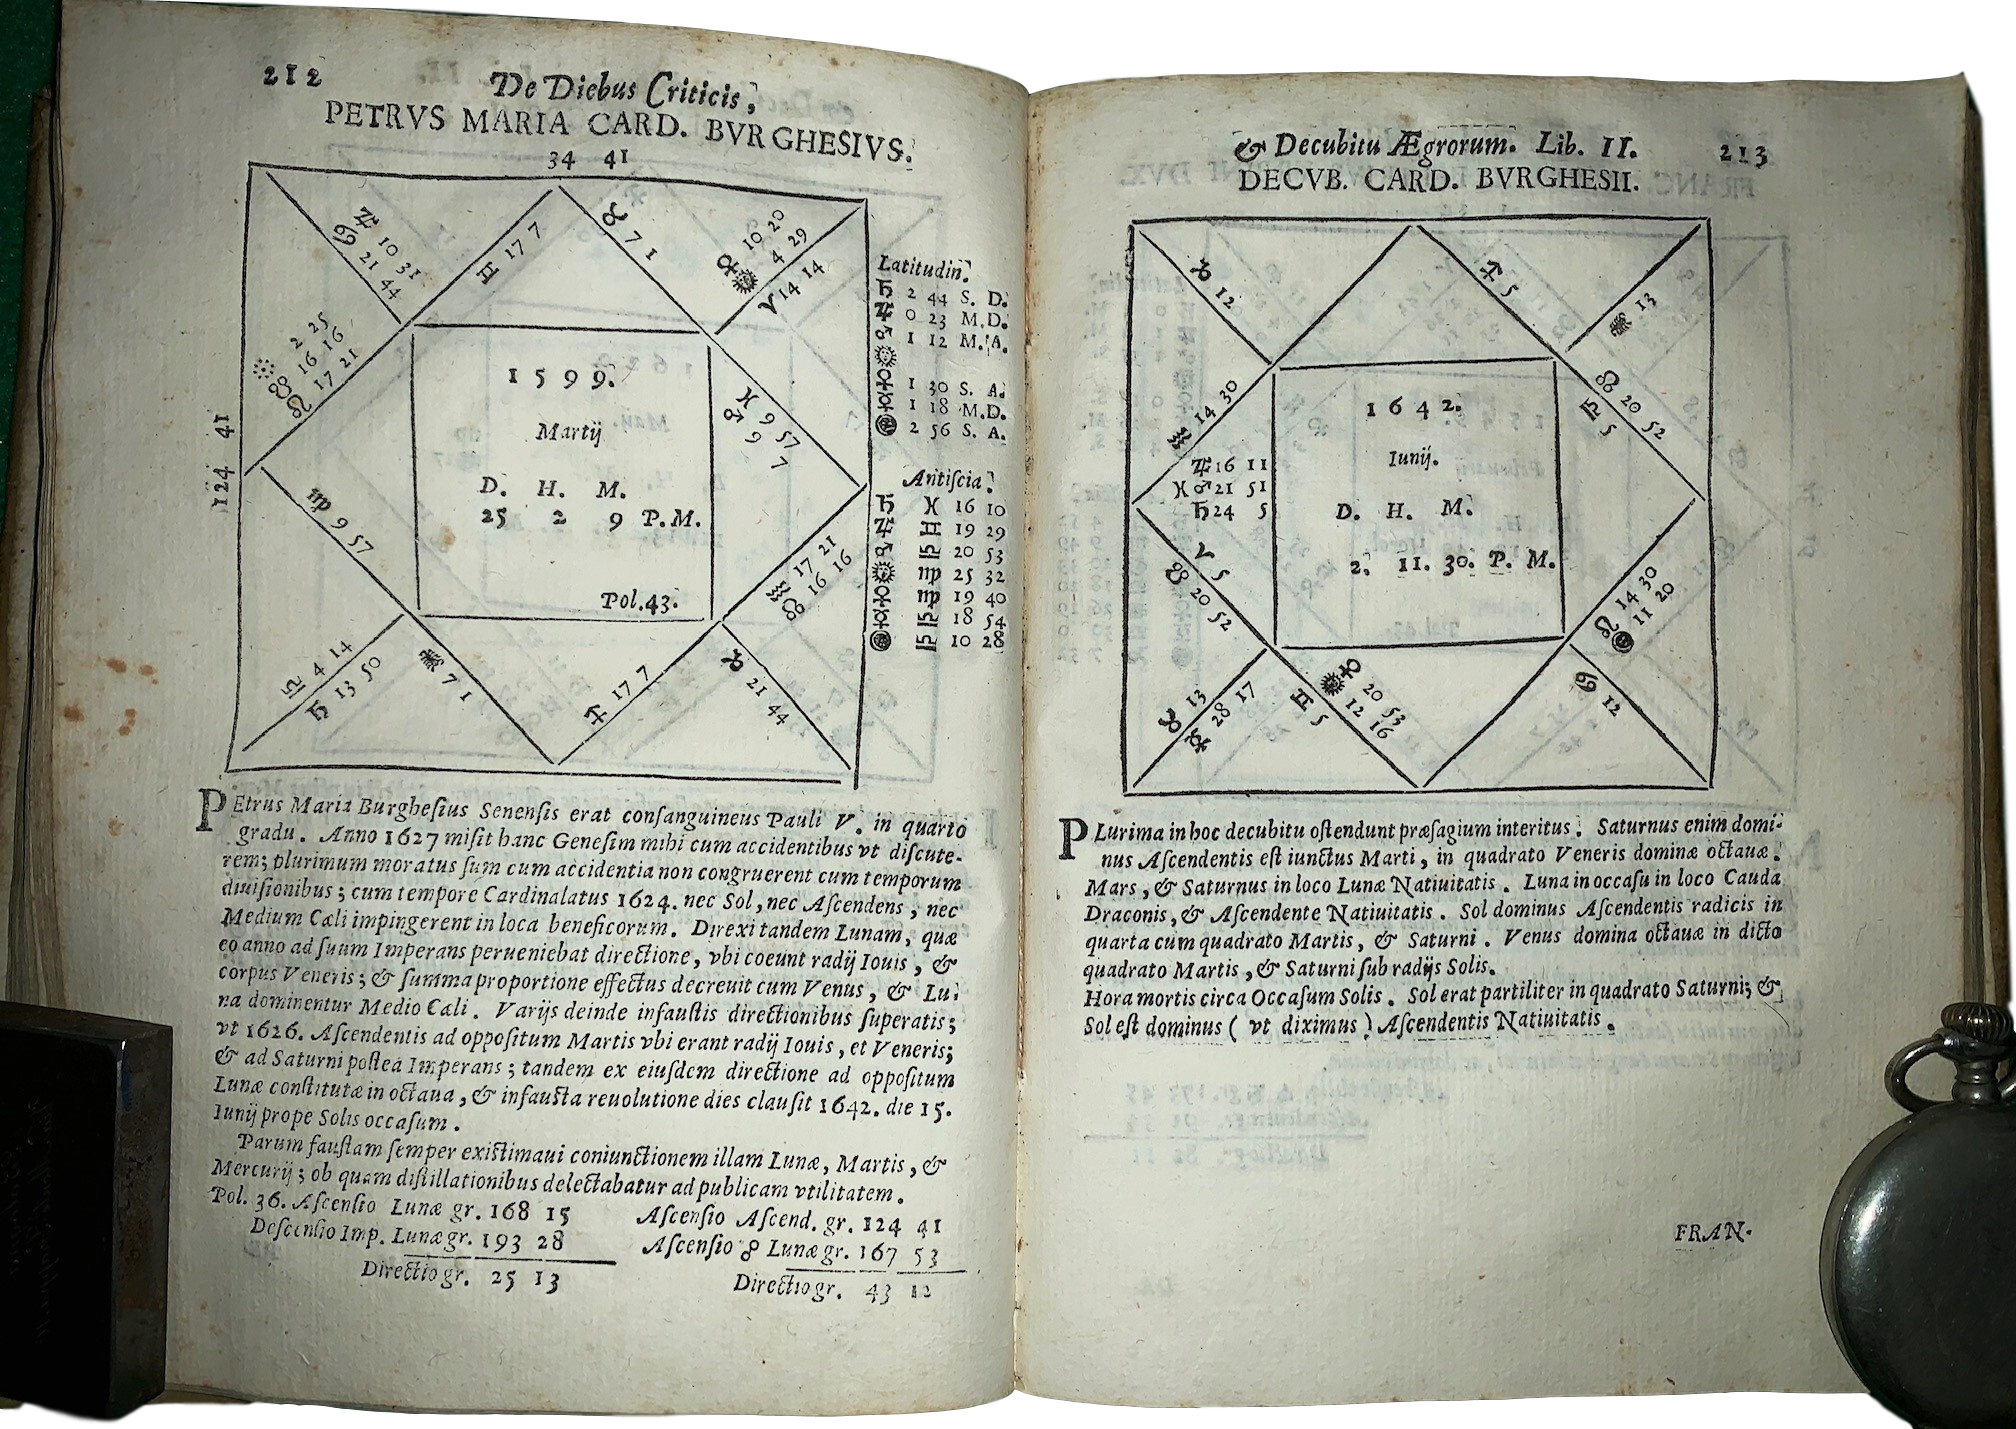 212
De Diebus Criticis,
PETRVS MARIA CARD. BVRGHESIVS.
34 41
♃ 10 31
♋ 21 44
♊ 17 7
♉ 7 1
♀ 10 20
☉ 4 29
♈ 14 14
2 25
☋ 16 16
♌ 17 21
124 41
1599.
Martij
D. H. M.
25 2 9 P.M.
Pol.43.
♓ 9 57
♂ 9 7
♍ 9 57
♒ 17 21
☊ 16 16
♎ 4 14
♄ 13 50
♏ 7 1
♐ 17 7
♑ 21 44
Latitudin.
♄ 2 44 S. D.
♃ 0 23 M.D.
♂ 1 12 M.A.
☉
♀ 1 30 S. A.
☿ 1 18 M.D.
☽ 2 56 S. A.
Antiſcia.
♄ ♓ 16 10
♃ ♊ 19 29
♂ ♎ 20 53
☉ ♍ 25 32
♀ ♍ 19 40
☿ ♎ 18 54
☽ ♎ 10 28
PEtrus Maria Burgheſius Senenſis erat conſanguineus Pauli V. in quarto
gradu. Anno 1627 miſit hanc Geneſim mihi cum accidentibus vt diſcute-
rem; plurimum moratus ſum cum accidentia non congruerent cum temporum
diuiſionibus; cum tempore Cardinalatus 1624. nec Sol, nec Aſcendens, nec
Medium Cæli impingerent in loca beneficorum. Direxi tandem Lunam, quæ
eo anno ad ſuum Imperans perueniebat directione, vbi coeunt radij Iouis, &
corpus Veneris; & ſumma proportione effectus decreuit cum Venus, & Lu-
na dominentur Medio Cæli. Varijs deinde infauſtis directionibus ſuperatis;
vt 1626. Aſcendentis ad oppoſitum Martis vbi erant radij Iouis, et Veneris;
& ad Saturni poſtea Imperans; tandem ex eiuſdem directione ad oppoſitum
Lunæ conſtitutæ in octaua, & infauſta reuolutione dies clauſit 1642. die 15.
Iunij prope Solis occaſum.
Parum fauſtam ſemper exiſtimaui coniunctionem illam Lunæ, Martis, &
Mercurij; ob quam diſtillationibus delectabatur ad publicam vtilitatem.
Pol. 36. Aſcenſio Lunæ gr. 168 15 Aſcenſio Aſcend. gr. 124 41
Deſcenſio Imp. Lunæ gr. 193 28 Aſcenſio ☍ Lunæ gr. 167 53
Directio gr. 25 13 Directio gr. 43 12
& Decubitu Ægrorum. Lib. II. 213
DECVB. CARD. BVRGHESII.
♑ 12
♐ 5
♏ 13
♒ 14 30
☊ 20 52
♎ 5
1642.
Iunij.
D. H. M.
2. 11. 30. P. M.
♃ 16 11
♓ ♂ 21 51
♄ 24 5
♈ 5
☋ 20 52
♌ 14 30
☽ 11 20
♉ 13
☿ 28 17
♊ 5
♀ 20 53
☉ 12 16
♋ 12
PLurima in hoc decubitu oſtendunt præſagium interitus. Saturnus enim domi-
nus Aſcendentis eſt iunctus Marti, in quadrato Veneris dominæ octauæ.
Mars, & Saturnus in loco Lunæ Natiuitatis. Luna in occaſu in loco Cauda
Draconis, & Aſcendente Natiuitatis. Sol dominus Aſcendentis radicis in
quarta cum quadrato Martis, & Saturni. Venus domina octauæ in dicto
quadrato Martis, & Saturni ſub radijs Solis.
Hora mortis circa Occaſum Solis. Sol erat partiliter in quadrato Saturni; &
Sol eſt dominus (vt diximus) Aſcendentis Natiuitatis.
FRAN-